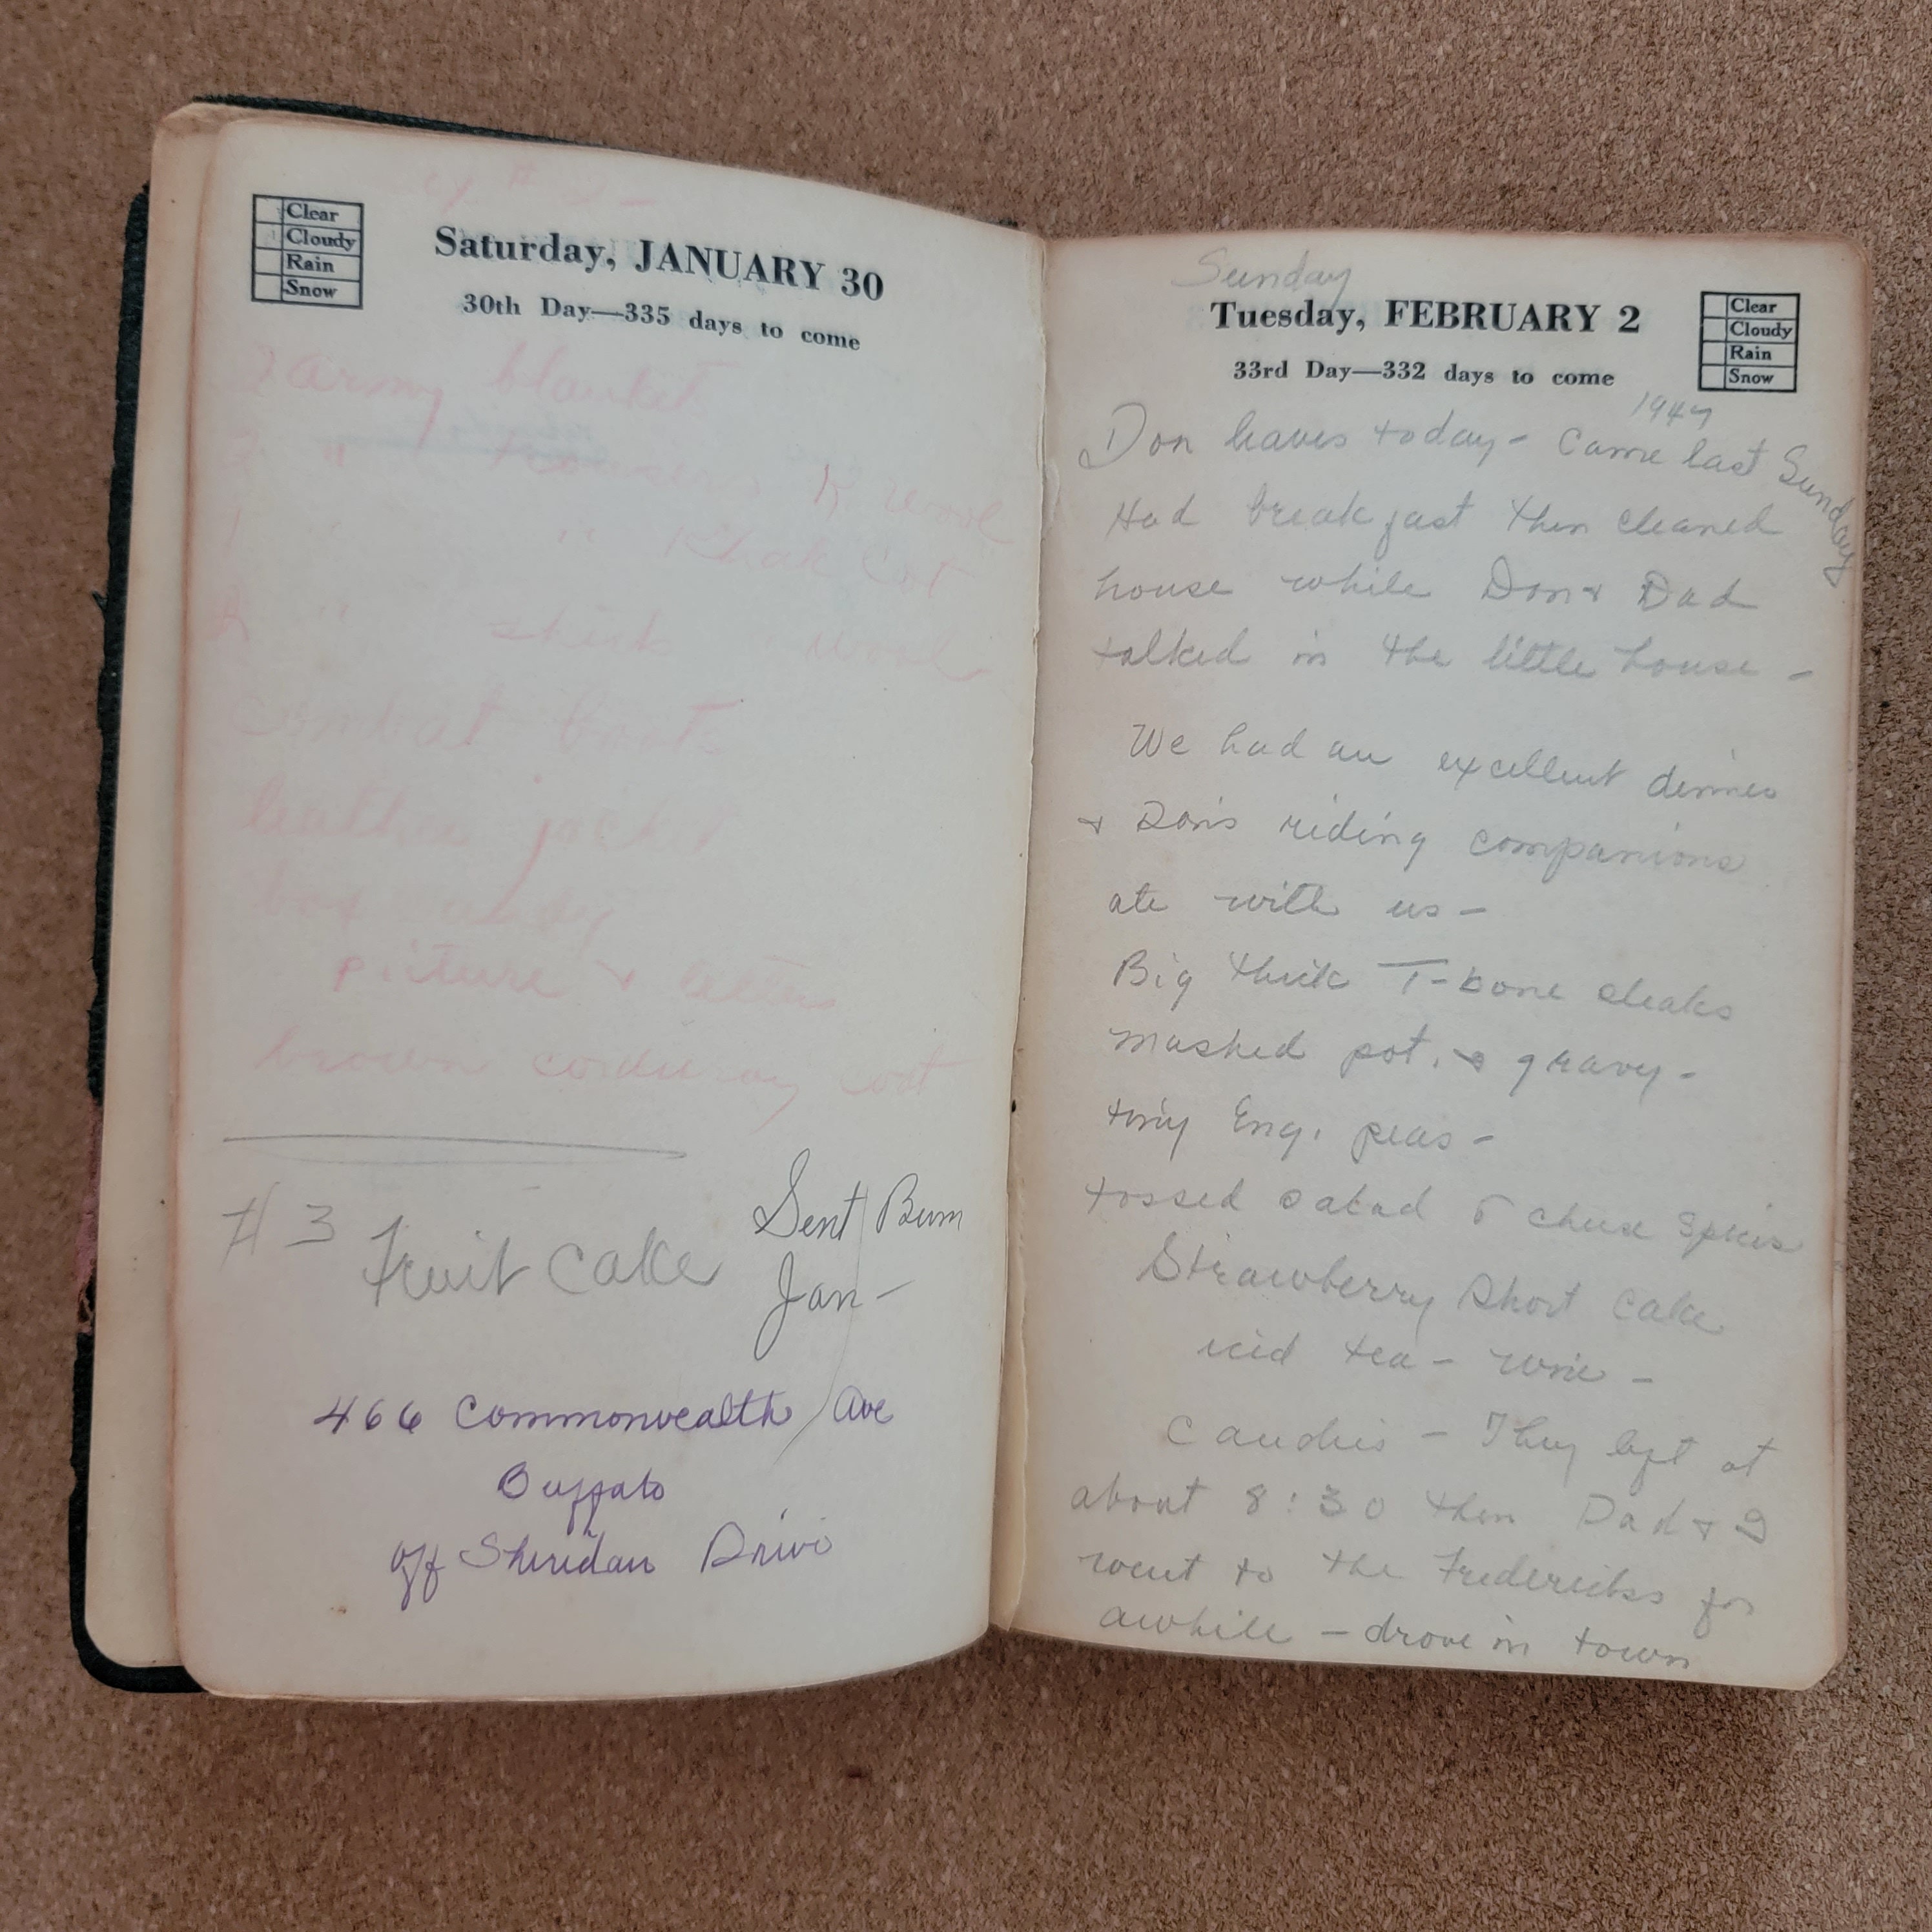 # 2 -
Clear
Cloudy
Rain
Snow
Saturday, JANUARY 30
30th Day—335 days to come
army blanket
2 " trousers K wool
1 " " Khak Cot
2 " shirt wool
combat boots
leather jacket
box
picture & letters
brown corduroy coat
# 3 Fruit Cake
Sent Bum
Jan -
466 Commonwealth Ave
Buffalo
off Sheridan Drive
Sunday
Tuesday, FEBRUARY 2
33rd Day—332 days to come
Clear
Cloudy
Rain
Snow
1947
Don leaves today - Came last Sunday
Had breakfast then cleaned
house while Don & Dad
talked in the little house -
We had an excellent dinner
& Don's riding companions
ate with us -
Big thick T-bone steaks
mashed pot. & gravy -
tiny Eng. peas -
tossed salad cheese
Strawberry Short Cake
iced tea - wine -
Candies - They left at
about 8:30 then Dad & I
went to the Fredericks for
awhile - drove in town